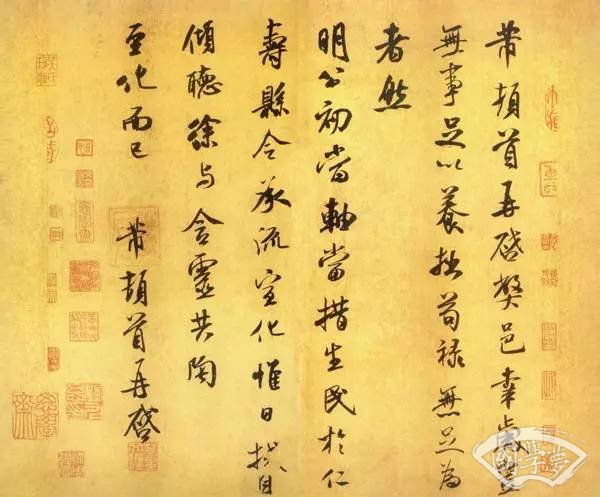 芾頓首再啓弊邑幸歲豐
無事足以養拙苟祿無足為
者然
明公初當軸當措生民於仁
壽縣令承流宣化惟日拭目
傾聽徐与含靈共陶
至化而已 芾頓首再啓
國學夢